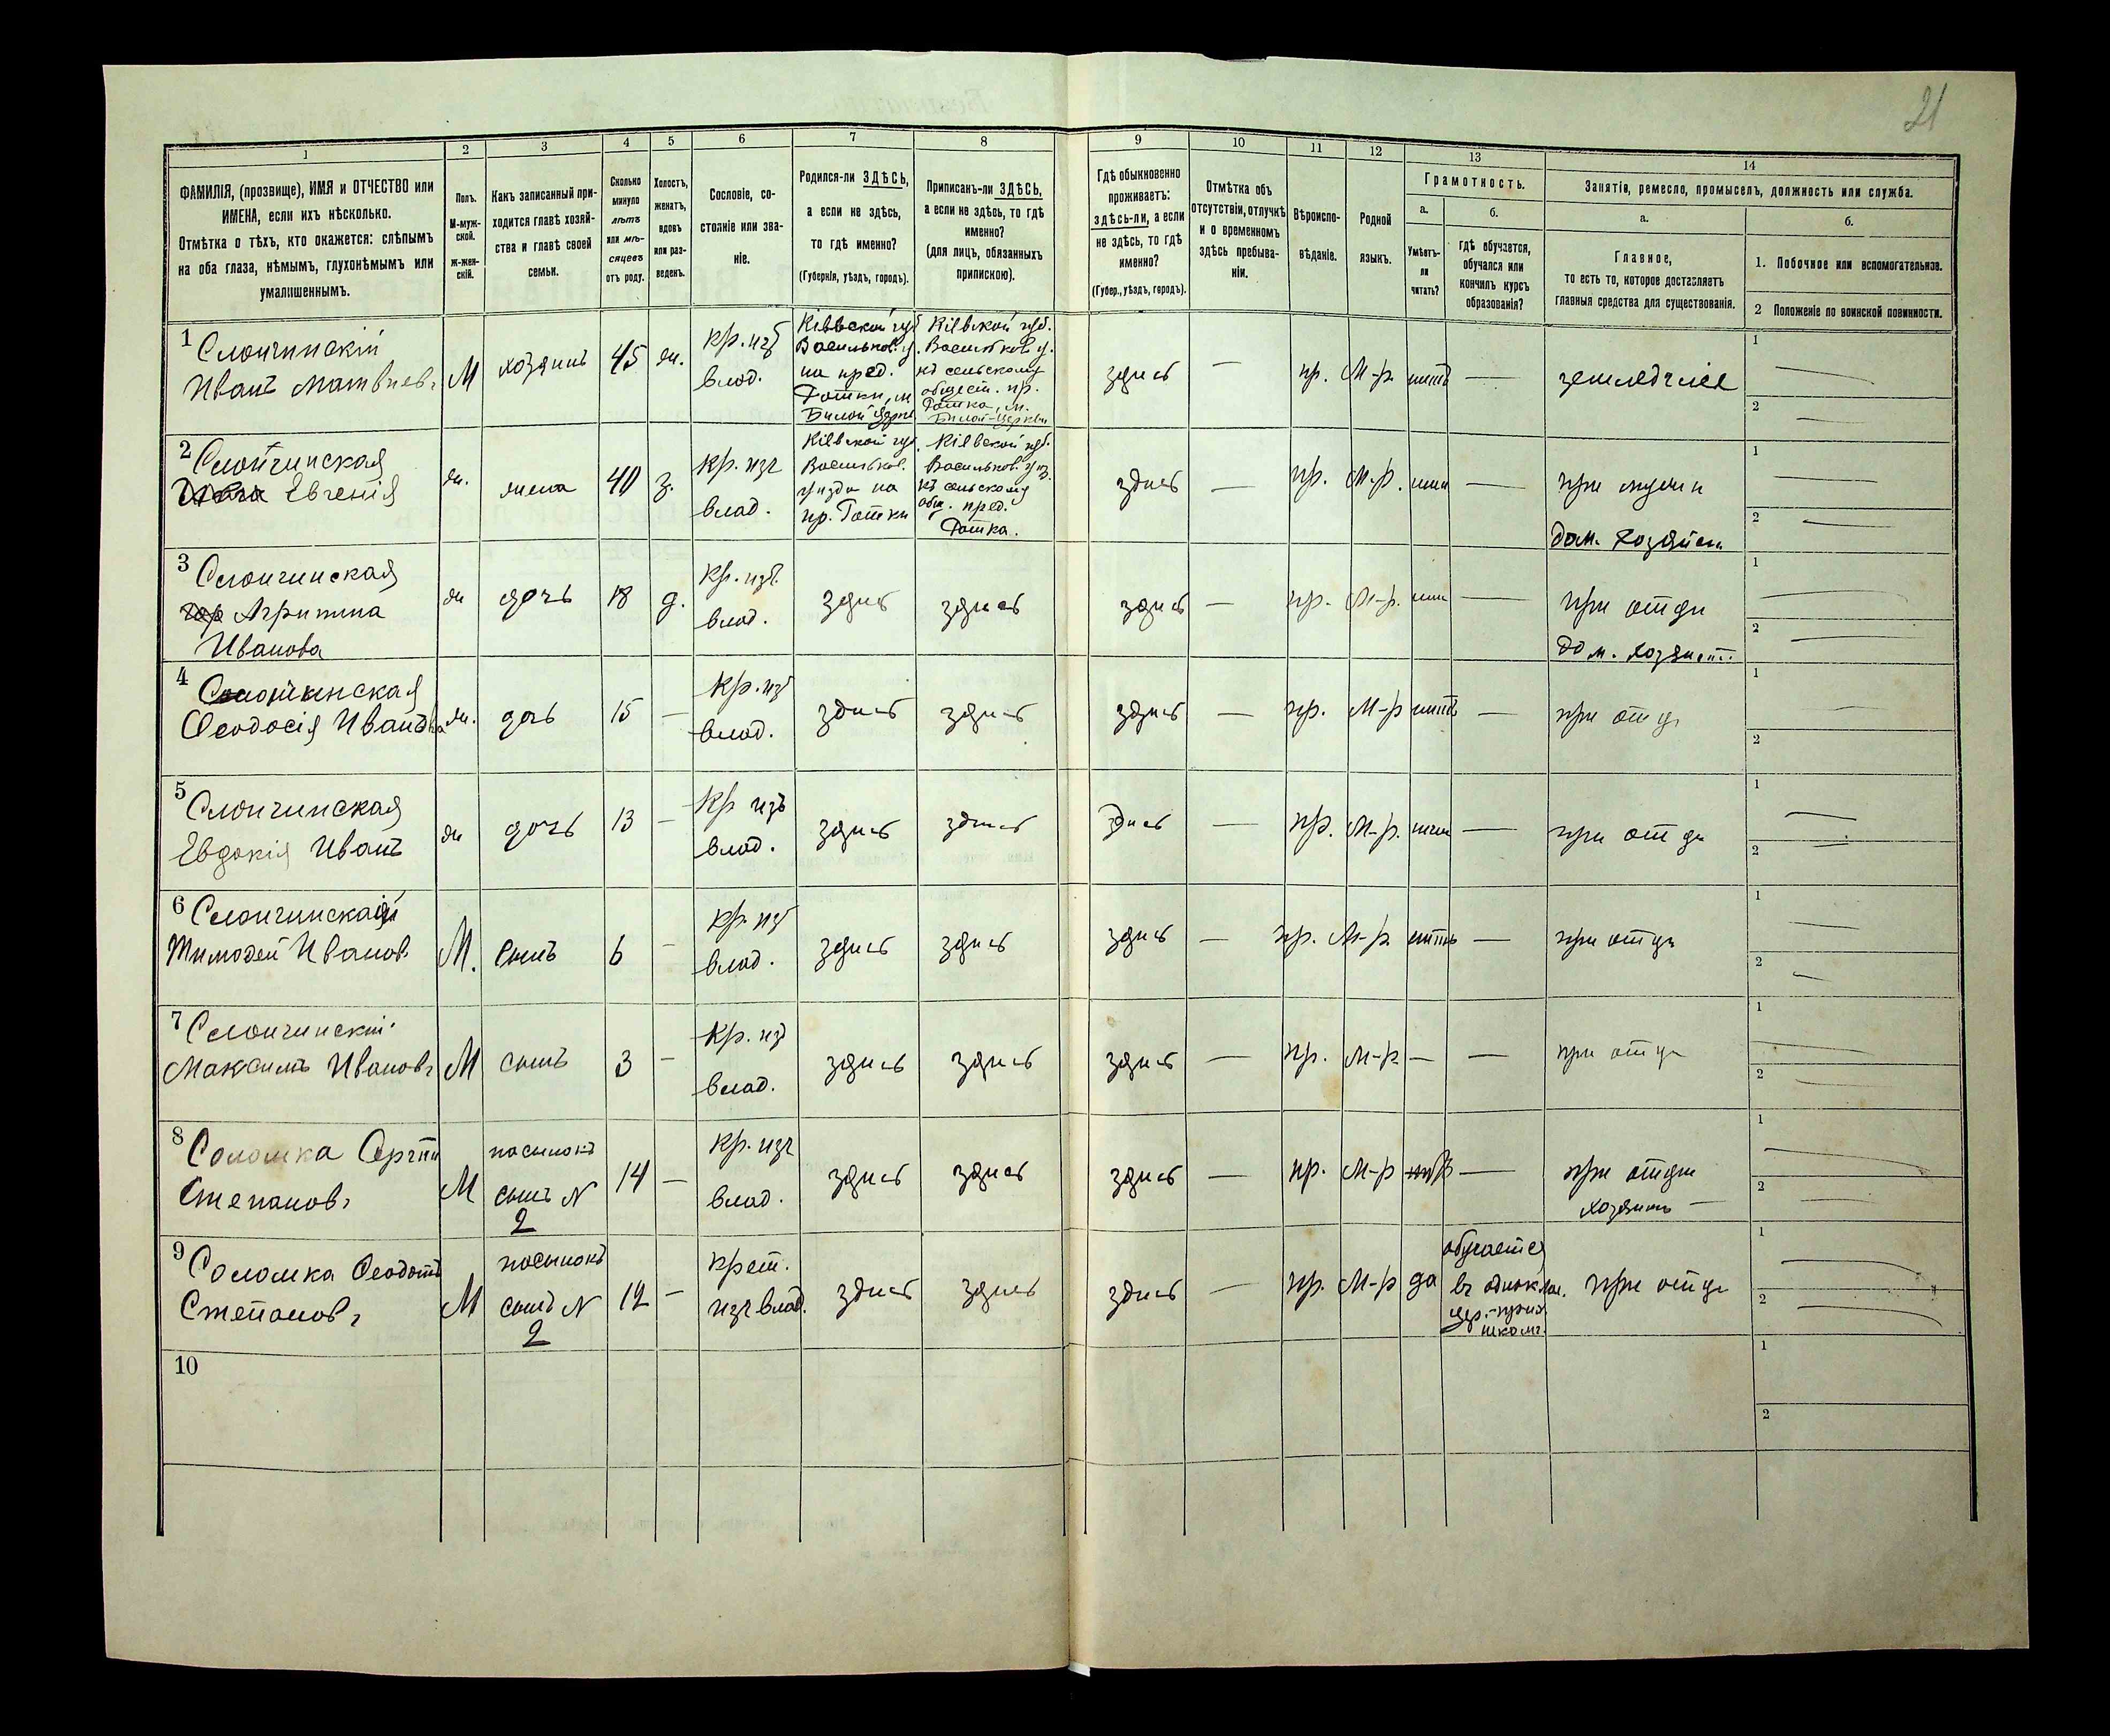 21
1 2 3 4 5 6 7 8 9 10 11 12 13 14
ФАМИЛІЯ, (прозвище), ИМЯ и ОТЧЕСТВО или
ИМЕНА, если ихъ нѣсколько.
Отмѣтка о тѣхъ, кто окажется: слѣпымъ
на оба глаза, нѣмымъ, глухонѣмымъ или
умалишеннымъ.
Полъ.
М-муж-
ской.
ж-жен-
скій.
Какъ записанный при-
ходится главѣ хозяй-
ства и главѣ своей
семьи.
Сколько
минуло
лѣтъ
или мѣ-
сяцевъ
отъ роду.
Холостъ,
женатъ,
вдовъ
или раз-
веденъ.
Сословіе, со-
стояніе или зва-
ніе.
Родился-ли ЗДѢСЬ,
а если не здѣсь,
то гдѣ именно?
(Губернія, уѣздъ, городъ).
Приписанъ-ли ЗДѢСЬ,
а если не здѣсь, то гдѣ
именно?
(для лицъ, обязанныхъ
припискою).
Гдѣ обыкновенно
проживаетъ:
здѣсь-ли, а если
не здѣсь, то гдѣ
именно?
(Губер., уѣздъ, городъ).
Отмѣтка объ
отсутствіи, отлучкѣ
и о временномъ
здѣсь пребыва-
ніи.
Вѣроиспо-
вѣданіе.
Родной
языкъ.
Грамотность.
а.
Умѣетъ-
ли
читать?
б.
гдѣ обучается,
обучался или
кончилъ курсъ
образованія?
Занятія, ремесло, промыселъ, должность или служба.
а.
Главное,
то есть то, которое доставляетъ
главныя средства для существованія.
б.
1. Побочное или вспомогательное.
2 Положеніе по воинской повинности.
1 Слончинскій
Иванъ Матвѣев.
М
хозяинъ
45
жн.
Кр. изъ
влад.
Кіевской губ
Васильков. у.
на пред.
Гатки, м
Кіевской губ.
Васильков у.
къ сельскому
общест. пр.
Гатка, м.
здись
—
пр.
М-р.
земледѣліе
1
2
2 Слончинская
Евгенія
жн.
жена
40
з.
Кр. изъ
влад.
Кіевской губ.
Васильков.
уизда на
пр. Гатки
Кіевской губ.
Васильков. уиз.
къ сельскому
общ. пред.
Гатка.
здись
—
пр.
М-р.
—
при мужи
дом. хозяйст
1
2
3 Слончинская
Агрипина
Иванова
жн
дочь
18
д.
Кр. изъ.
влад.
здись
здись
здись
—
пр.
М-р.
—
при отци
дом. хозяист.
1
2
4 Слончинская
Ѳеодосія Иванова
жн.
дочь
15
—
Кр. изъ
влад.
здись
здись
здись
—
пр.
М-р
—
при отци
1
2
5 Слончинская
Евдокія Иван
жн
дочь
13
—
Кр изъ
влад.
здись
здись
здись
—
пр.
М-р.
—
при отци
1
2
6 Слончинскій
Тимофей Иванов
М.
сынъ
6
—
Кр. изъ
влад.
здись
здись
здись
—
пр.
М-р.
—
при отци
1
2
7 Слончинскій
Максимъ Иванов
М
сынъ
3
—
Кр. изъ
влад.
здись
здись
здись
—
пр.
М-р.
—
—
при отци
1
2
8 Соломка Сергѣй
Степанов
М
пасынокъ
сынъ N
2
14
—
Кр. изъ
влад.
здись
здись
здись
—
пр.
М-р
—
при отци
1
2
9 Соломка Ѳеодотъ
Степанов
М
пасынокъ
сынъ N
2
12
—
Крест.
изъ влад.
здись
здись
здись
—
пр.
М-р
да
обучается
въ однокла.
цер.-прих
школѣ.
при отци
1
2
10
1
2